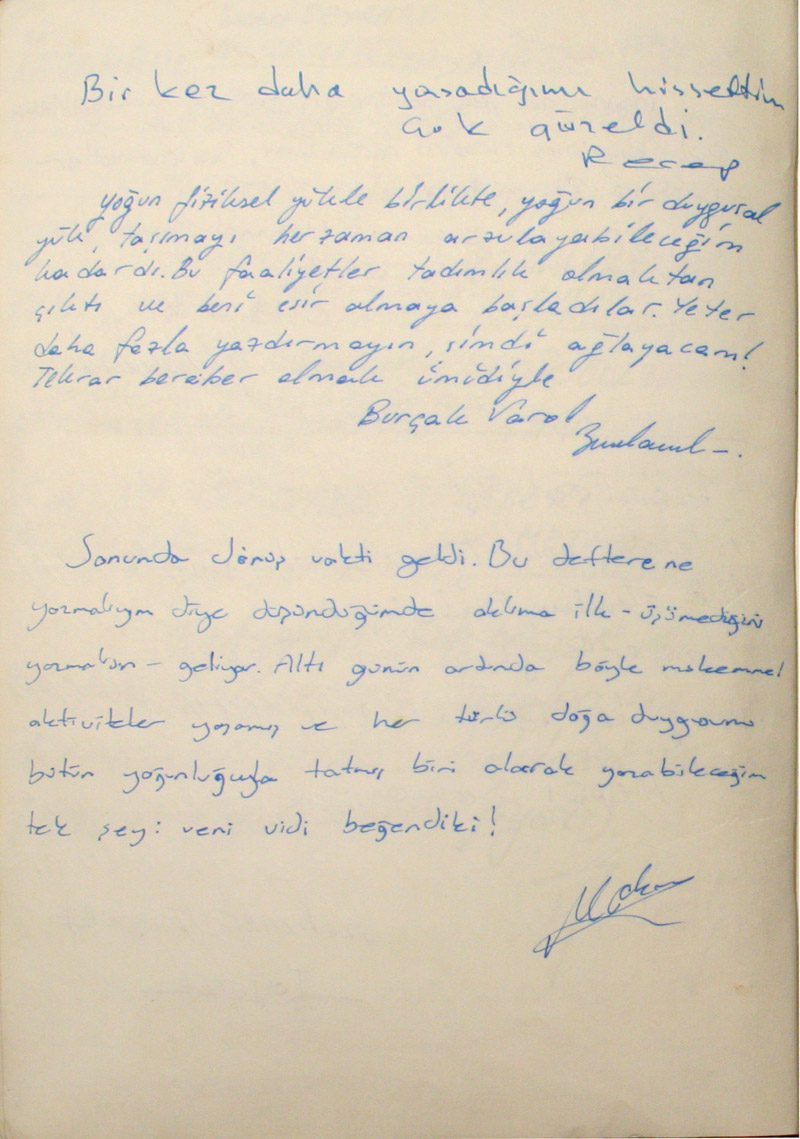 Bir kez daha yaşadığımı hissettim
Çok güzeldi.
Recep
Yoğun fiziksel yükle birlikte, yoğun bir duygusal
yük, taşımayı her zaman arzulayabileceğim
kadardı. Bu faaliyetler tadımlık olmaktan
çıktı ve beni esir almaya başladılar. Yeter
daha fazla yazdırmayın, şimdi ağlayacam!
Tekrar beraber olmak ümidiyle
Burçak Varol
Sonunda dönüş vakti geldi. Bu deftere ne
yazmalıyım diye düşündüğümde aklıma ilk - üşümediğimi
yazmalıyım - geliyor. Altı günün ardında böyle mükemmel
aktiviteler yaşamış ve her türlü doğa duygusunu
bütün yoğunluğuyla tatmış biri olarak yazabileceğim
tek şey: veni vidi beğendiki!